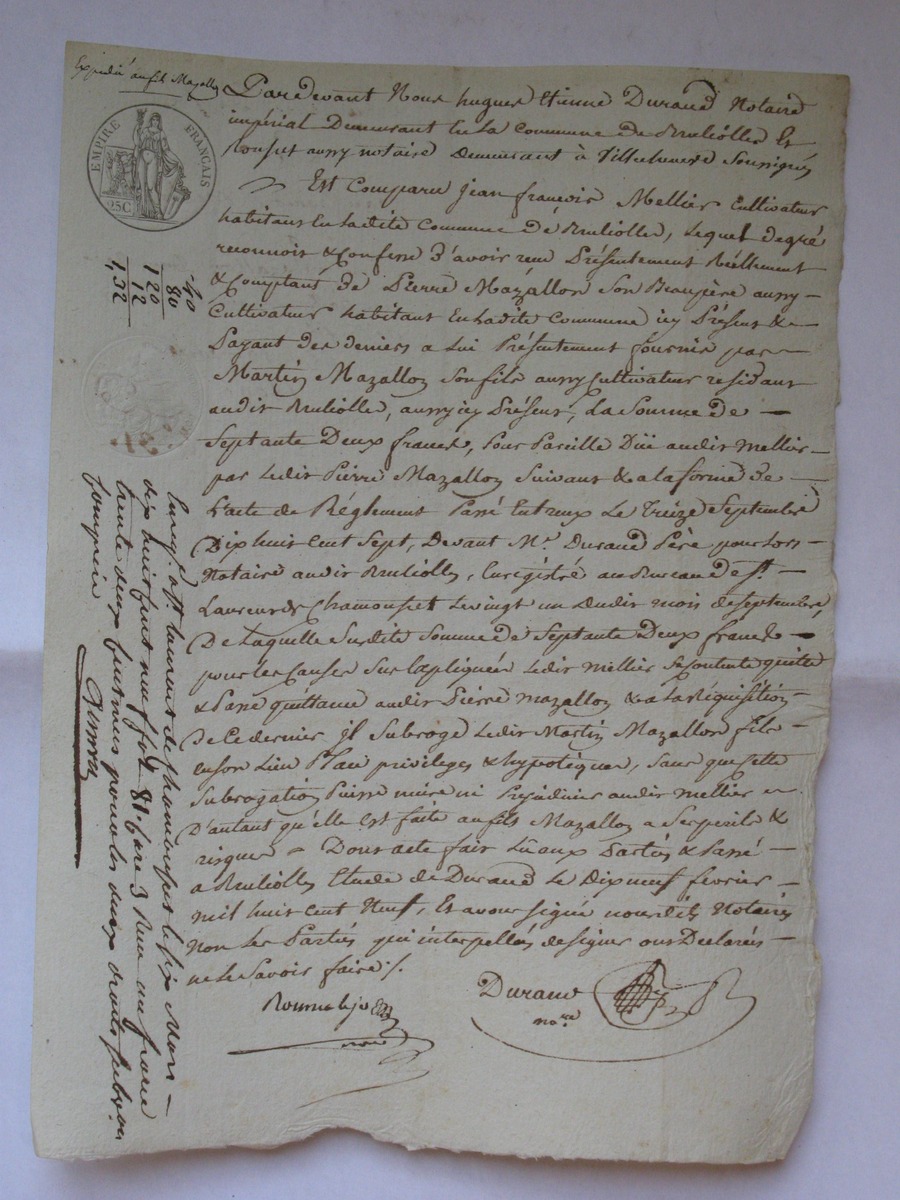 Expédié au fils Mazallon
EMPIRE FRANÇAIS
25C
Pardevant Nous hugues Etienne Durand Notaire
impérial Demeurant En La Commune de Brullioles Et
aussy notaire Demeurant à Villechenève Soussignés
Est Comparu jean françois Mellier Cultivateur
habitant En Ladite Commune de Brullioles, Lequel de gré
reconnoit & Confesse d'avoir reçu Présentement Réellement
& Comptant de Pierre Mazallon Son Beaupère aussy
Cultivateur habitant En Ladite Commune icy Présent &
Payant des deniers a Lui Présentement fournis par
Martin Mazallon Son fils aussy Cultivateur residant
audit Brullioles, aussy icy Présent, La Somme de
Septante Deux francs, Pour Pareille Düe audit Mellier
par Ledit Pierre Mazallon Suivant & a la forme de
L'acte de Réglement Passé Entreux Le Treize Septembre
Dix huit Cent Sept, Devant Me. Durand Père pour Lors
Notaire audit Brullioles, Enregistré au Bureau de St.
Laurent de Chamousset Le vingt un dudit mois de Septembre,
De Laquelle Susdite Somme de Septante Deux francs
pour les Causes Sus Expliquées Ledit Mellier Se Contente quitte
& Passe quittance audit Pierre Mazallon & a La Réquisition
de Ce dernier il Subroge Ledit Martin Mazallon fils
en son Lieu Place privileges & hypotéques, Sans que Cette
Subrogation Puisse nuire ni Prejudicier audit Mellier
D'autant qu'elle Est faite au fils Mazallon a Ses perils &
risques = Dont acte fait Lû aux Parties & Passé
a Brullioles Etude de Durand Le Dix neuf février
mil huit Cent Neuf, Et avons signé nousdits Notaires
Non Les Parties qui interpellées de signer ont Declarés
ne Le Savoir faire ./.
Durand
nore
40
80
120
12
1,32
Enregé. a St. Laurent de Chamousset le six Mars
dix huit Cent neuf fol. 81. Case 3 Reçu un franc
trente deux Centimes pour les deux droits subvon
Comprise